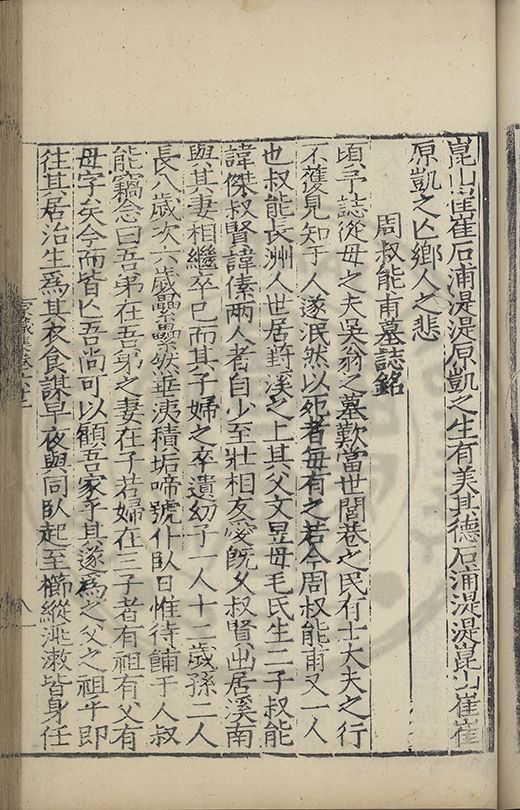 崑山崔崔石浦湜湜原凱之生有美其德石浦湜湜崑山崔崔
原凱之亾鄉人之悲
周叔能甫墓誌銘
頃予誌從母之夫吳翁之墓歎當世閭巷之民有士大夫之行
不獲見知于人遂泯然以死者每有之若今周叔能甫又一人
也叔能長洲人世居對溪之上其父文昱母毛氏生二子叔能
諱傑叔賢諱傃兩人者自少至壯相友愛旣夕叔賢出居溪南
與其妻相繼卒已而其子婦之卒遺幼子一人十二歲孫二人
長八歲次六歲纍纍然垂洟積垢啼號仆臥日惟待餔于人叔
能竊念曰吾弟在吾弟之妻在子若婦在三子者有祖有父有
母字矣今而皆亾吾尚可以顧吾家乎其遂爲之父之祖乎即
往其居治生爲其衣食謀早夜與同臥起至櫛縱洮漱皆身任
家藏集卷六十
八